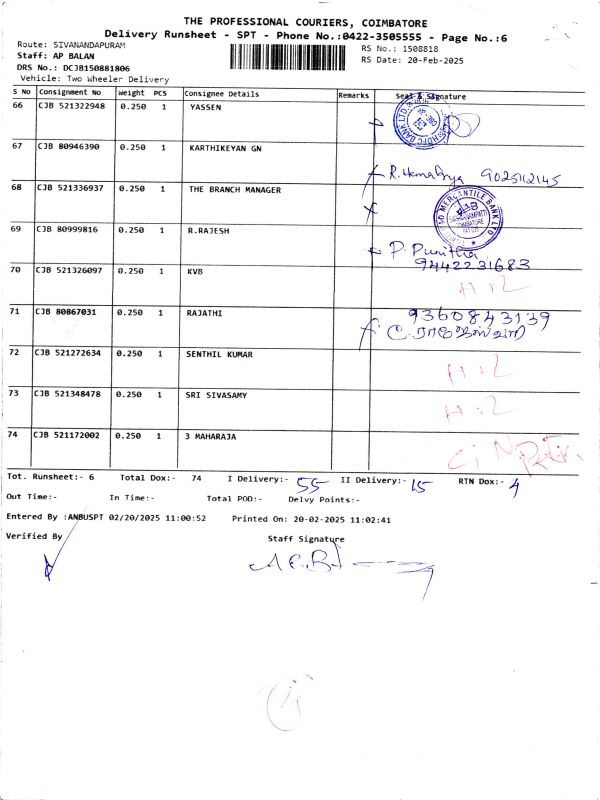 THE PROFESSIONAL COURIERS, COIMBATORE
Delivery Runsheet - SPT - Phone No.:0422-3505555 - Page No.:6
Route: SIVANANDAPURAM
RS No.: 1508818
Staff: AP BALAN
RS Date: 20-Feb-2025
DRS No.: DCJB150881806
Vehicle: Two Wheeler Delivery
S No Consignment No Weight PCS Consignee Details Remarks Seal & Signature
66 CJB 521322948 0.250 1 YASSEN
HDFC BANK LTD
67 CJB 80946390 0.250 1 KARTHIKEYAN GN
R. Hemapriya 9025112145
68 CJB 521336937 0.250 1 THE BRANCH MANAGER
MERCANTILE BANK LTD
COIMBATORE
69 CJB 80999816 0.250 1 R.RAJESH
P. Punitha
9442231683
70 CJB 521326097 0.250 1 KVB
71 CJB 80867031 0.250 1 RAJATHI
9360843139
72 CJB 521272634 0.250 1 SENTHIL KUMAR
73 CJB 521348478 0.250 1 SRI SIVASAMY
74 CJB 521172002 0.250 1 3 MAHARAJA
Tot. Runsheet:- 6 Total Dox:- 74 I Delivery:- 55 II Delivery:- 15 RTN Dox:- 4
Out Time:- In Time:- Total POD:- Delvy Points:-
Entered By :ANBUSPT 02/20/2025 11:00:52 Printed On: 20-02-2025 11:02:41
Verified By Staff Signature